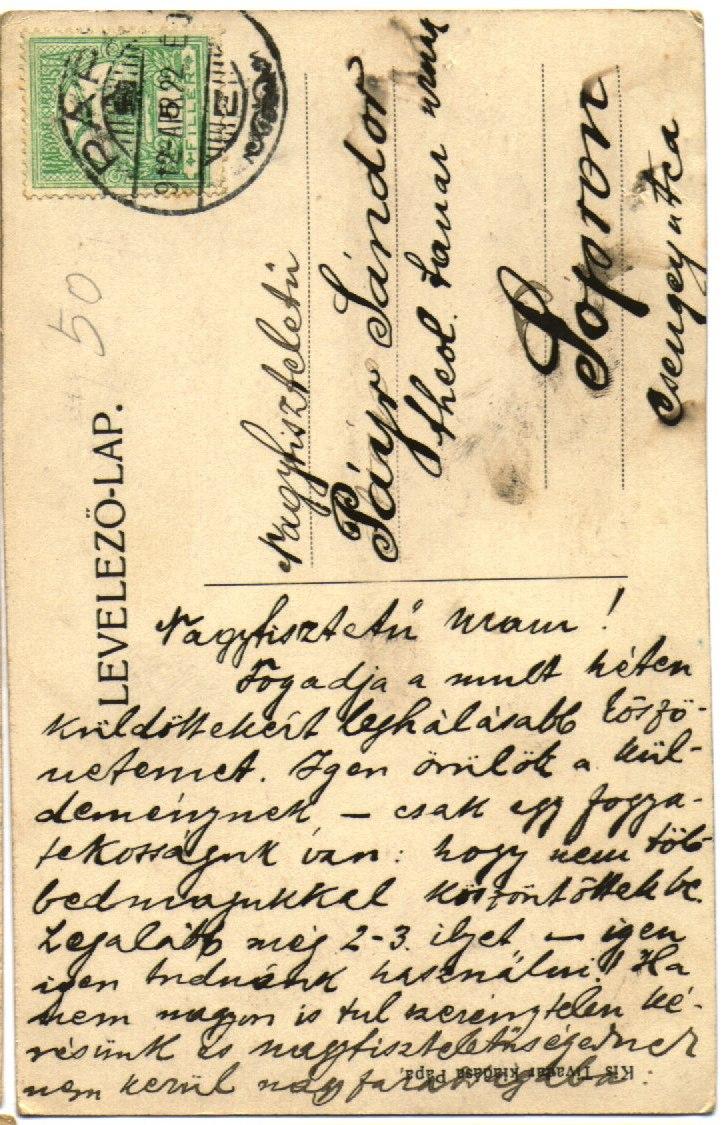 MAGYAR KIR. POSTA
FILLÉR
PÁPA
912 ÁPR. 22
50
LEVELEZŐ-LAP.
Nagytiszteletű
Payr Sándor
theol. tanár urnak
Sopron
Csengey utca
Nagytiszteletű uram!
Fogadja a mult héten
küldöttekért leghálásabb köszö-
netemet. Igen örülök a kül-
deménynek – csak egy fogya-
tékosságuk van: hogy nem töb-
bedmagukkal köszöntöttek be.
Legalább még 2-3 ilyet – igen
igen tudnánk használni! Ha
nem nagyon is tul szerénytelen ké-
résünk és nagytiszteletűségednek
nem kerül nagy fáradságába.
Kis Tivadar kiadása Pápa.